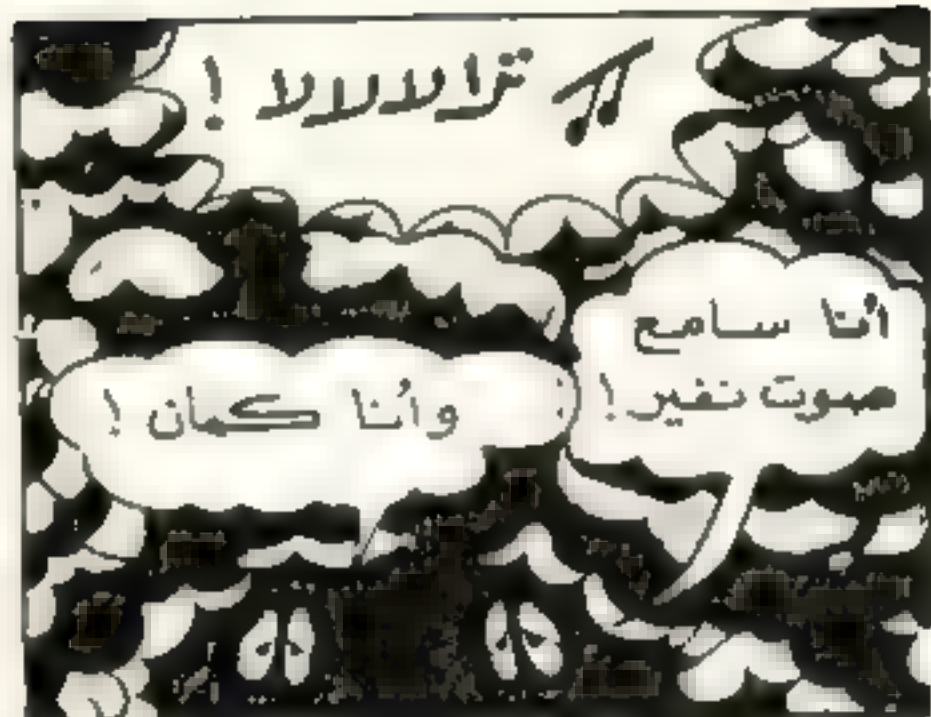 ترالالالا !
أنا سامع
صوت نفير !
وأنا كمان !